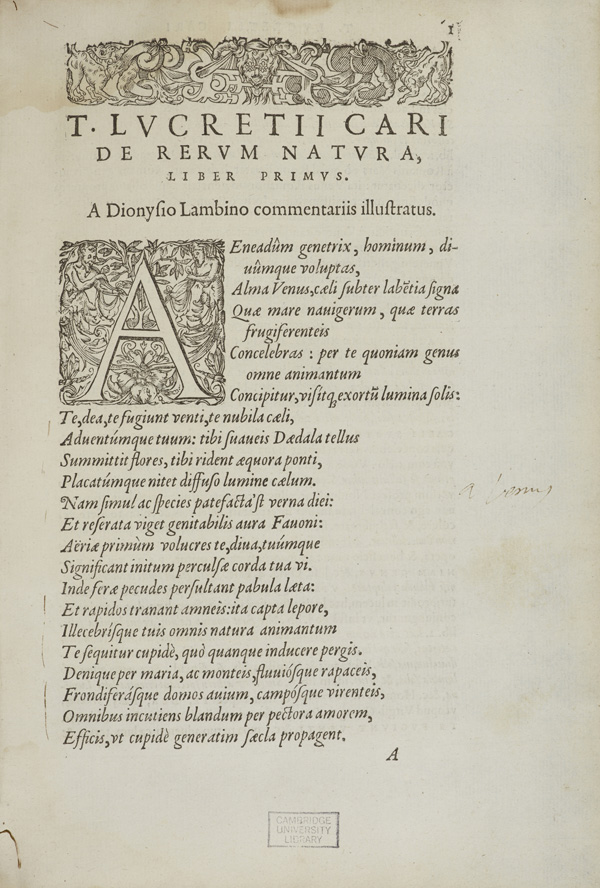 1
T. LVCRETII CARI
DE RERVM NATVRA,
LIBER PRIMVS.
A Dionyſio Lambino commentariis illuſtratus.
AEneadûm genetrix, hominum, di-
uûmque voluptas,
Alma Venus, cæli ſubter labētia ſigna
Quæ mare nauigerum, quæ terras
frugiferenteis
Concelebras: per te quoniam genus
omne animantum
Concipitur, viſitq; exortū lumina ſolis:
Te, dea, te fugiunt venti, te nubila cæli,
Aduentúmque tuum: tibi ſuaueis Dædala tellus
Summittit flores, tibi rident æquora ponti,
Placatúmque nitet diffuſo lumine cælum.
Nam ſimul ac ſpecies patefacta'ſt verna diei:
Et reſerata viget genitabilis aura Fauoni:
Aëriæ primùm volucres te, diua, tuúmque
Significant initum perculſæ corda tua vi.
Inde feræ pecudes perſultant pabula læta:
Et rapidos tranant amneis: ita capta lepore,
Illecebríſque tuis omnis natura animantum
Te ſequitur cupidè, quò quanque inducere pergis.
Denique per maria, ac monteis, fluuióſque rapaceis,
Frondiferáſque domos auium, campóſque virenteis,
Omnibus incutiens blandum per pectora amorem,
Efficis, vt cupidè generatim ſæcla propagent.
A
CAMBRIDGE
UNIVERSITY
LIBRARY